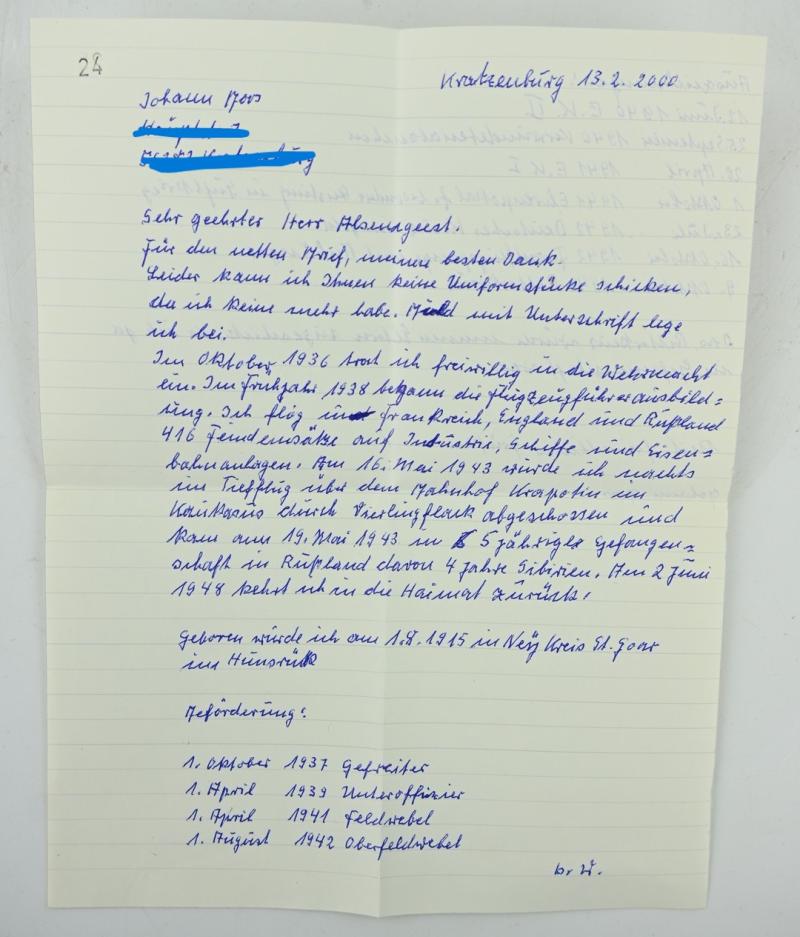 24
Kratzenburg 13.2. 2000
Johann Moos
Sehr geehrter Herr
Für den netten Brief, meinen besten Dank
Leider kann ich Ihnen keine Uniformstücke schicken,
da ich keine mehr habe. Bild mit Unterschrift lege
ich bei.
Im Oktober 1936 trat ich freiwillig in die Wehrmacht
ein. Im Frühjahr 1938 begann die Flugzeugführerausbild=
ung. Ich flog in Frankreich, England und Rußland
416 Feindeinsätze auf Industrie, Schiffe und Eisen=
bahnanlagen. Am 16. Mai 1943 wurde ich nachts
im Tiefflug über dem Bahnhof Krapotin im
Kaukasus durch Vierlingflack abgeschossen und
kam am 19. Mai 1943 in 5 jährige Gefangen=
schaft in Rußland davon 4 Jahre Sibirien. Am 2 Juni
1948 kehrt ich in die Heimat zurück.
Geboren wurde ich am 1915 in Ney Kreis St. Goar
im Hunsrück
Beförderung:
1. Oktober 1937 Gefreiter
1. April 1939 Unteroffizier
1. April 1941 Feldwebel
1. August 1942 Oberfeldwebel
b.w.